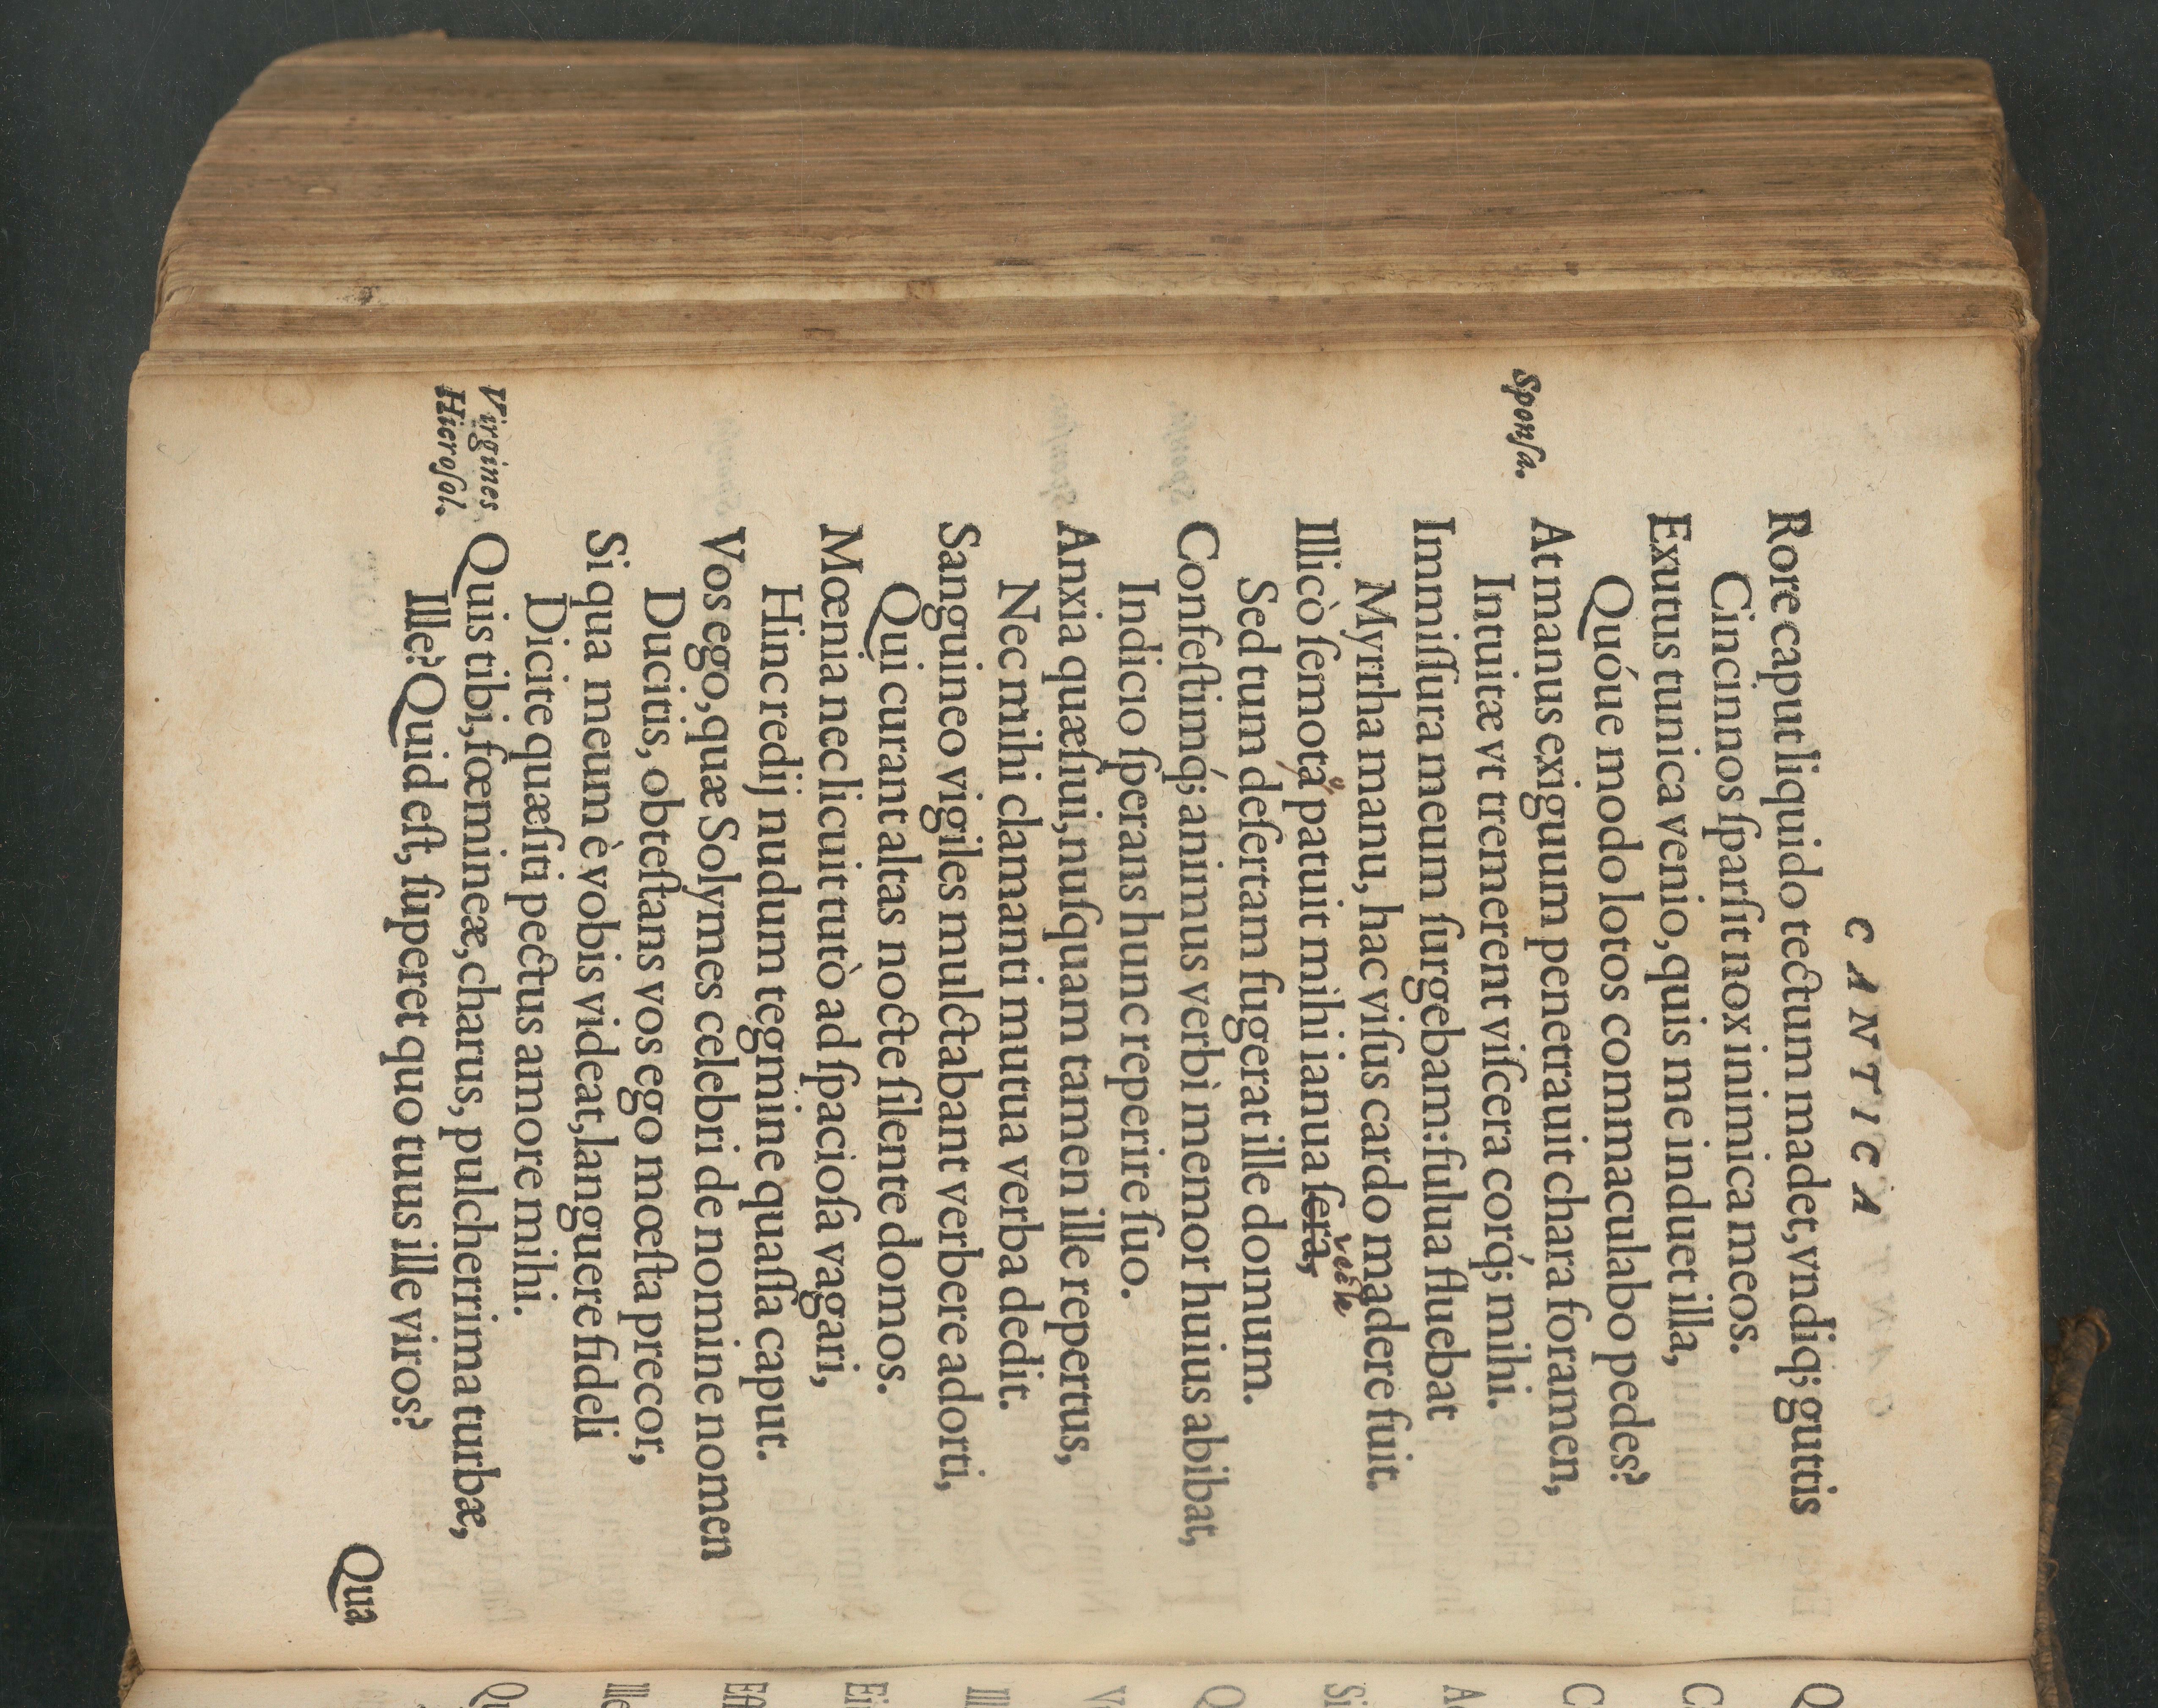 CANTICA
Rore caput liquido tectum madet, vndiq; guttis
Cincinnos ſparſit nox inimica meos.
Exutus tunica venio, quis me induet illa,
Quóue modo lotos commaculabo pedes?
Sponſa.
At manus exiguum penetrauit chara foramen,
Intuitæ vt tremerent viſcera corq́; mihi.
Immiſſura meum ſurgebam: fulua fluebat
Myrrha manu, hac viſus cardo madere fuit.
Illicò ſemota patuit mihi ianua ſera,
vecte
Sed tum deſertam fugerat ille domum.
Confeſtimq́; animus verbi memor huius abibat,
Indicio ſperans hunc reperire ſuo.
Anxia quæſiui, nuſquam tamen ille repertus,
Nec mihi clamanti mutua verba dedit.
Sanguineo vigiles mulctabant verbere adorti,
Qui curant altas nocte ſilente domos.
Mœnia nec licuit tutò ad ſpacioſa vagari,
Hinc redij nudum tegmine quaſſa caput.
Vos ego, quæ Solymes celebri de nomine nomen
Ducitis, obteſtans vos ego mœſta precor,
Si qua meum è vobis videat, languere fideli
Dicite quæſiti pectus amore mihi.
Virgines
Hieroſol.
Quis tibi, fœmineæ, charus, pulcherrima turbæ,
Ille? Quid eſt, ſuperet quo tuus ille viros?
Qua